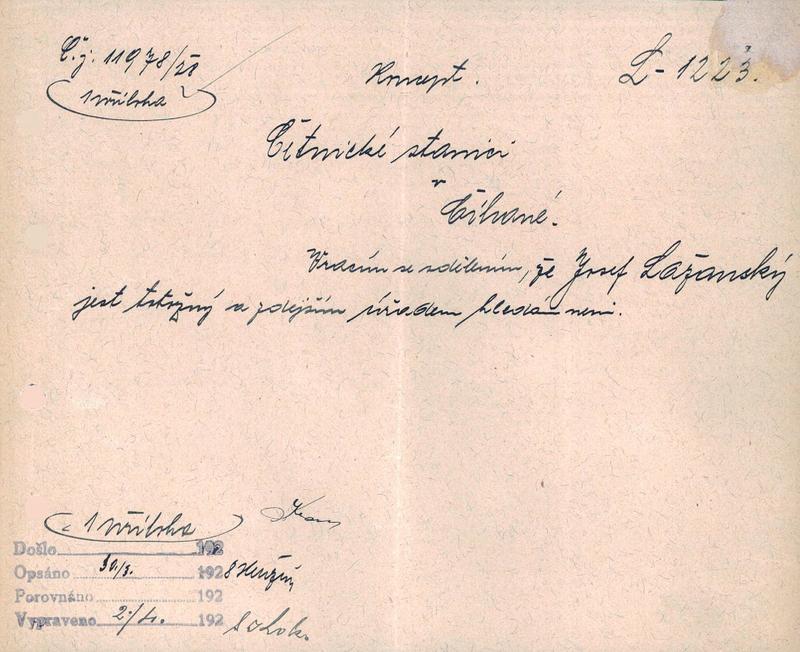 Č.j. 11978/28
1 příloha
Koncept.
L-1223.
Četnické stanici
v
Číhané.
Vracím se sdělením, že Josef Lažanský
jest totožný a zdejším úřadem hledán není.
1 příloha
Došlo 192
Opsáno 30/3. 1928
Porovnáno 192
Vypraveno 2./4. 192